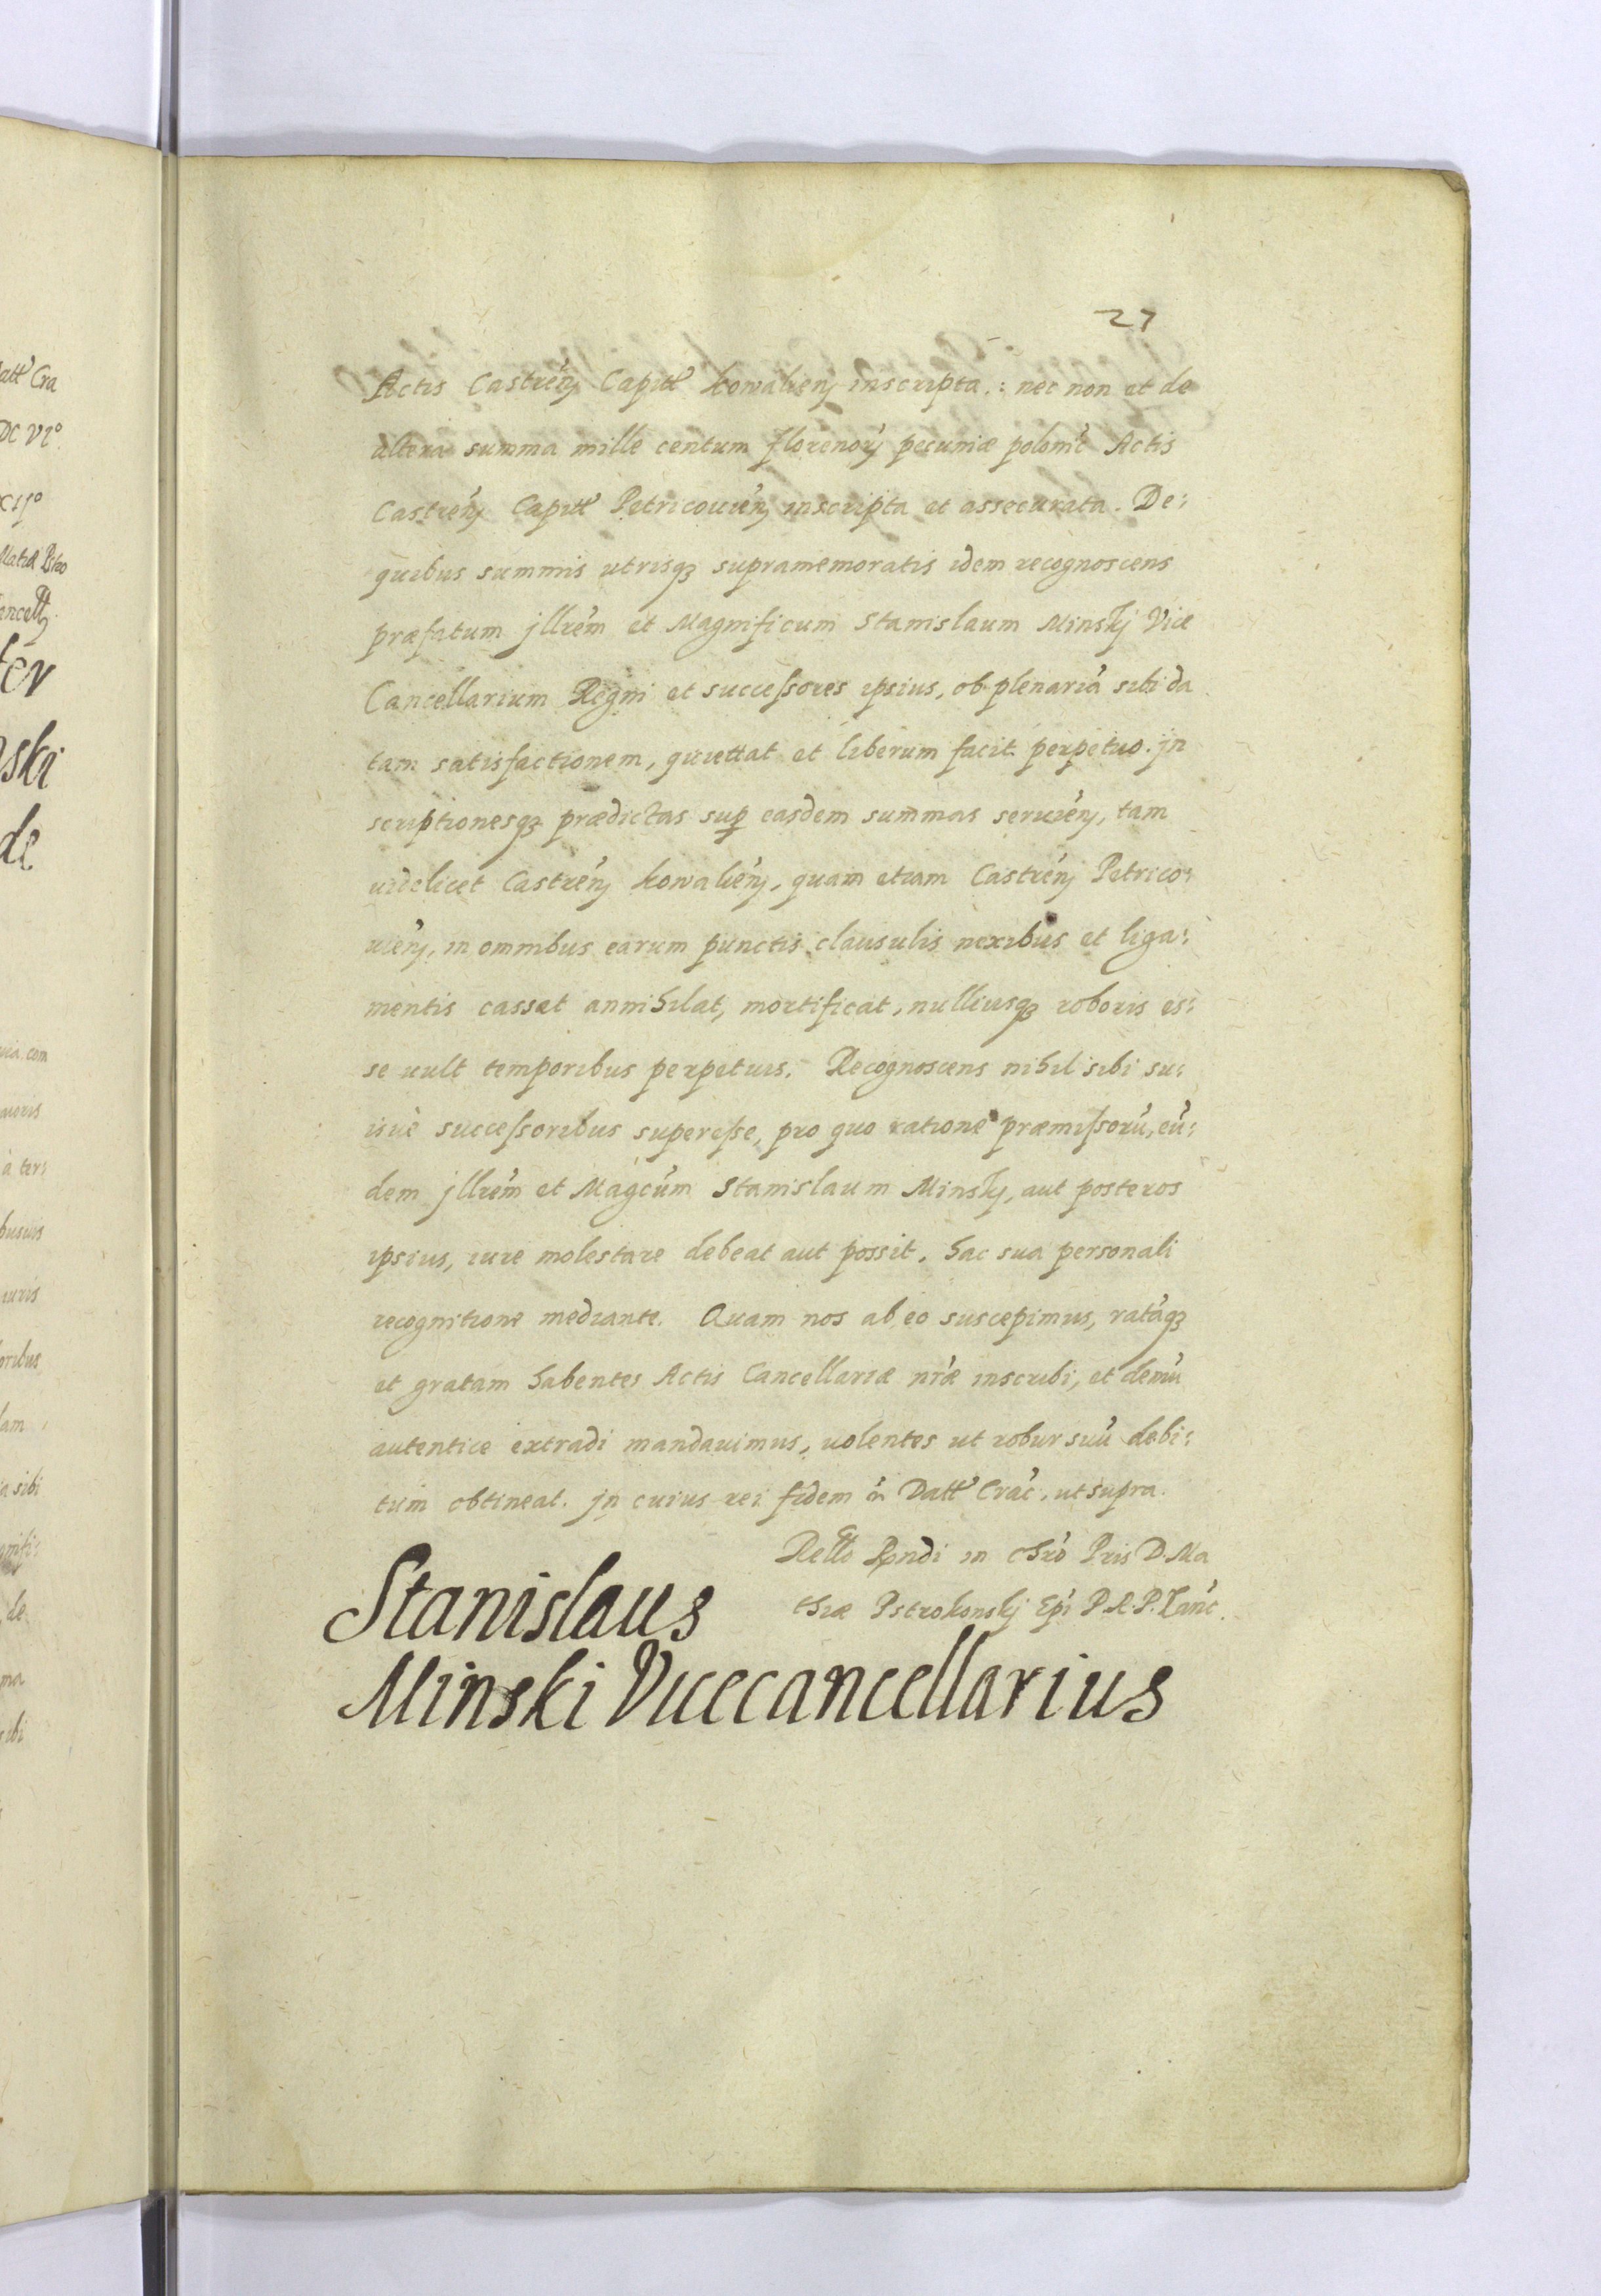 27
Actis Castrēn Capitł kowalien inscripta.: nec non et de
altera summa mille centum florenorų pecuniæ polonic̄ Actis
Castrēn Capitł Petricouiēn inscripta et assecurata. De:
quibus summis utrisqꝫ supramemoratis idem recognoscens
præfatum jllrēm et Magnificum Stanislaum Minskj Vice
Cancellarium Regni et succeſsores ipsius, ob plenariā sibi da
tam satisfactionem, quiettat et liberum facit perpetuo. jn
scriptionesqꝫ prædictas sup easdem summas seruiēn, tam
uidelicet Castrēn kowaliēn, quam etiam Castrēn Petrico:
uiēn, in omnibus earum punctis clausulis nexibus et liga:
mentis cassat annihilat, mortificat, nulliusqꝫ roboris es:
se uult temporibus perpetuis. Recognoscens nihil sibi su:
isuè succeſsoribus supereſse, pro quo ratione præmiſsorū, eū:
dem jllrēm et Magcūm Stanislaum Minskj, aut posteros
ipsius, iure molestare debeat aut possit. hac sua personali
recognitione mediante. Quam nos ab eo suscepimus, ratāqꝫ
et gratam habentes Actis Cancellariæ nr̄æ inscribi, et demū
autentice extradi mandauimus, uolentes ut robur suū debi:
tum obtineat. jn cuius rei fidem Datł Crac̄, ut supra.
Retło Rndi in Chrō Pris D. Ma
thiæ Pstrokonskj Epī P. R. P. Canc̄.
Stanislaus
Minski Vicecancellarius
att Cra
DC VI°
ski
de
uia com
à ter:
busuis
iuris
oribus
lam
a sibi
de
ma
ibi